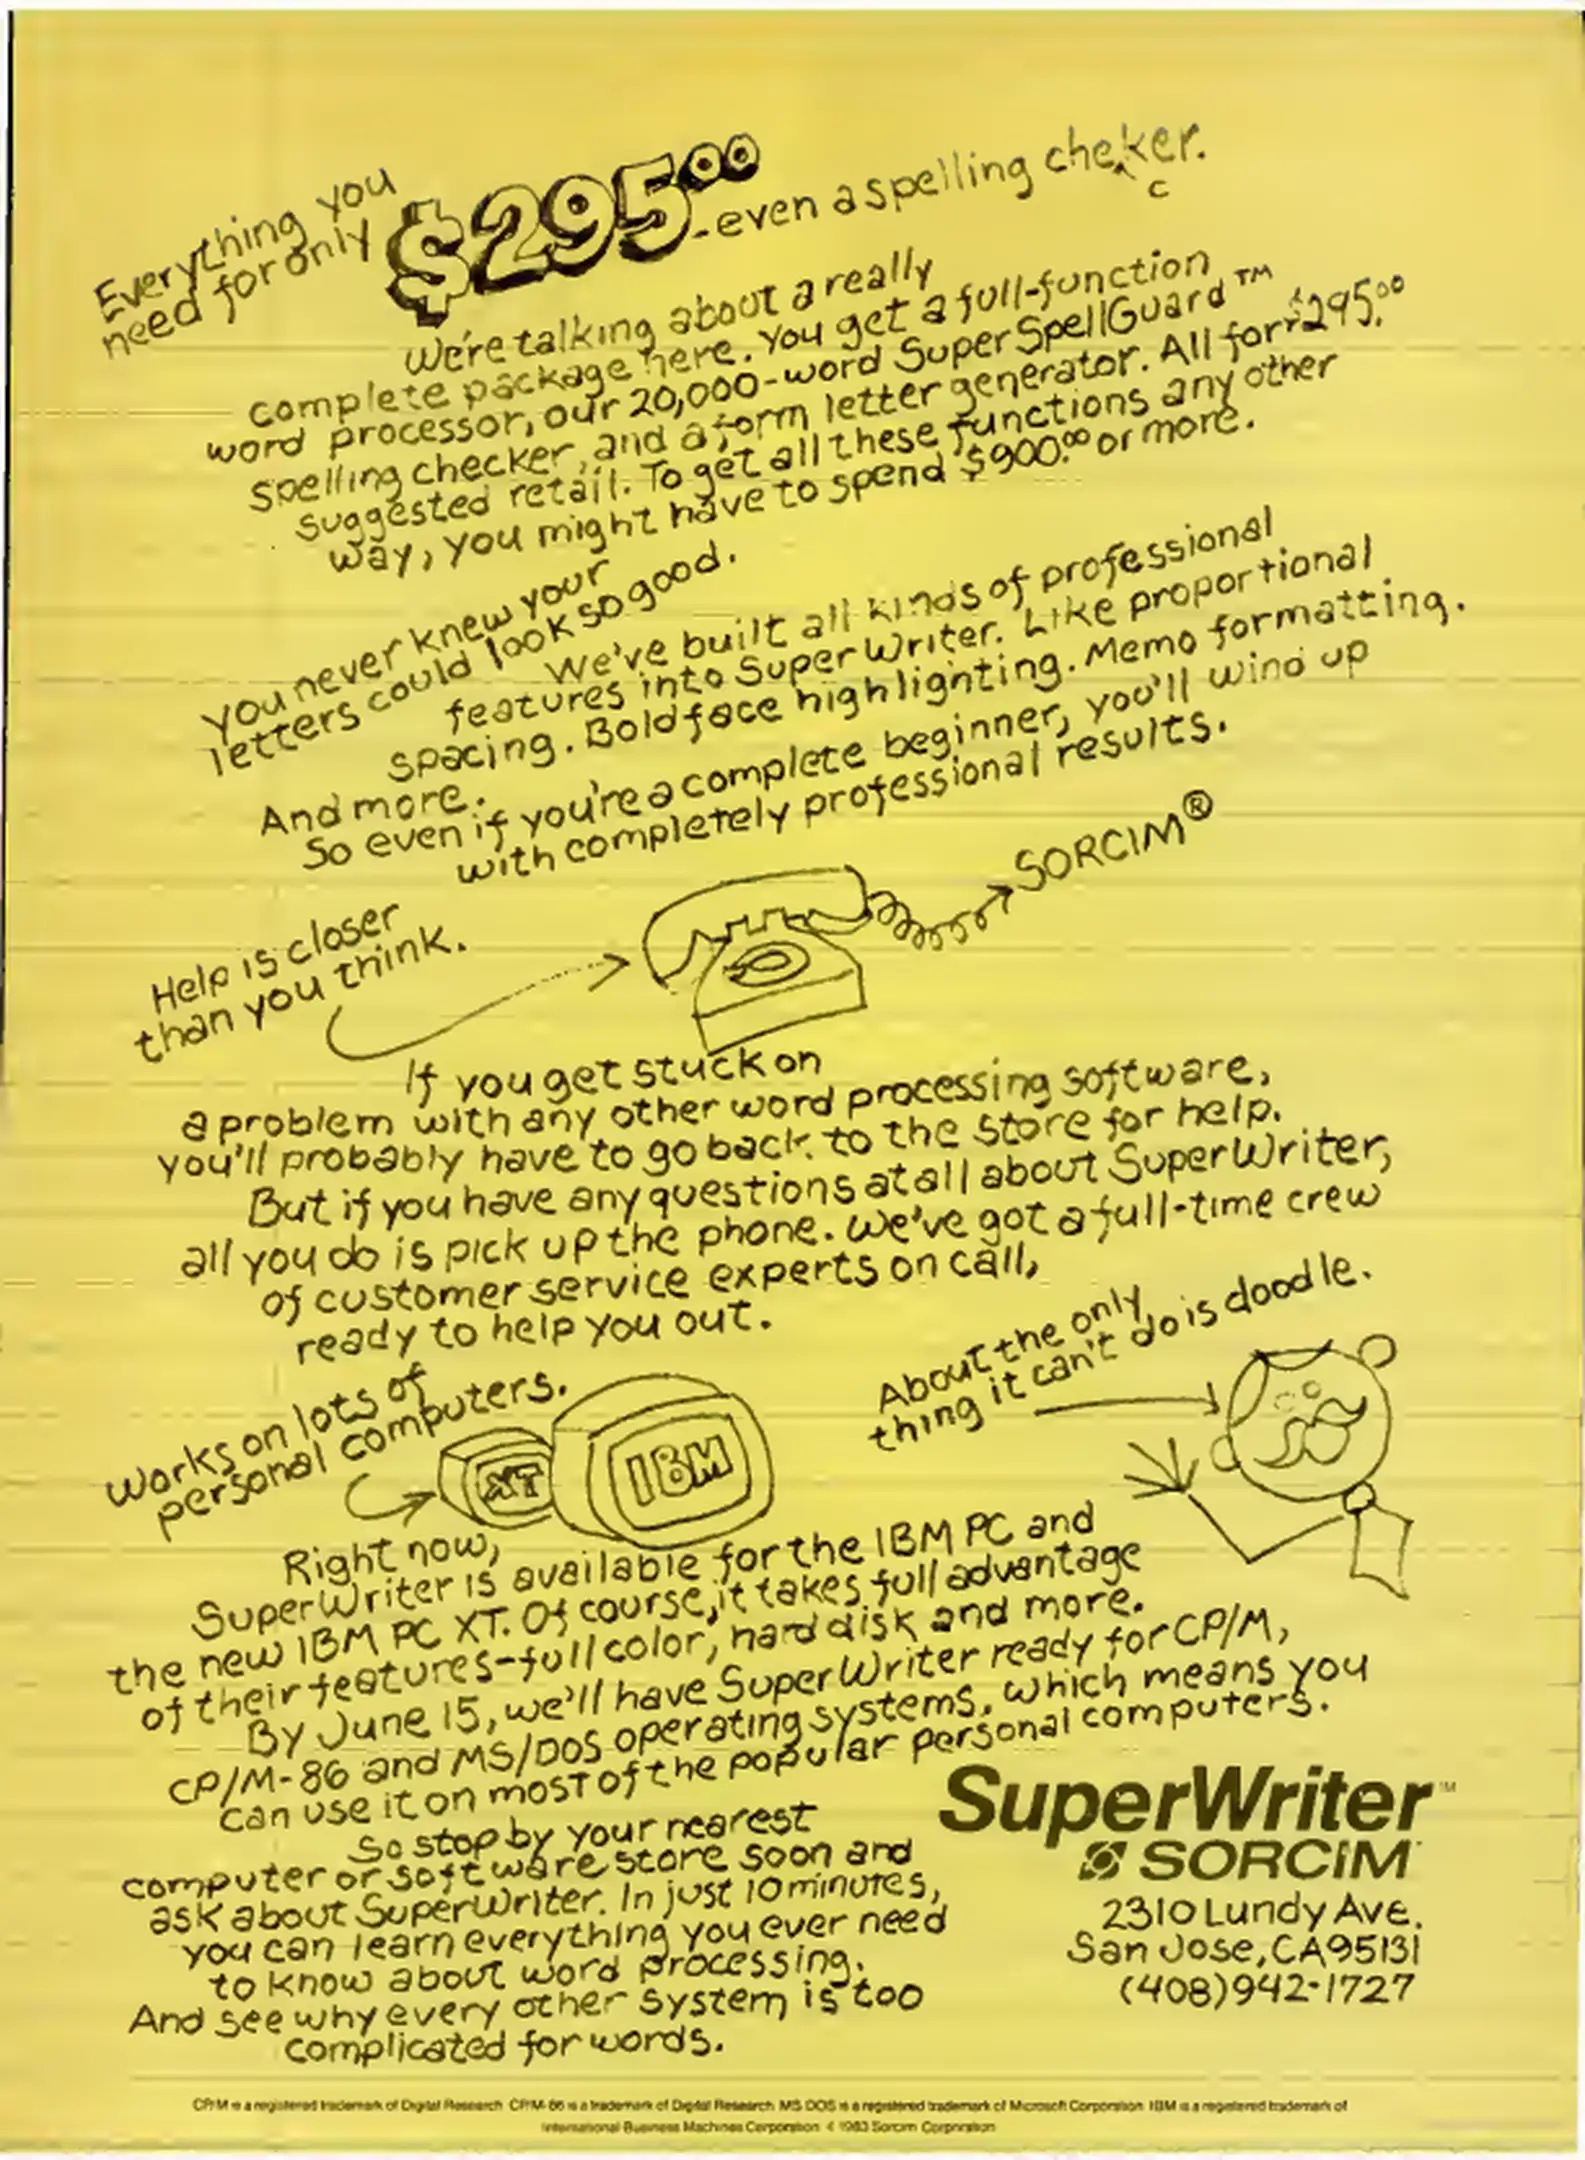 Everything you
need for only $295.00 - even a spelling cheker.
c
We're talking about a really
complete package here. You get a full-function
word processor, our 20,000-word SuperSpellGuard™
spelling checker, and a form letter generator. All for $295.00
suggested retail. To get all these functions any other
way, you might have to spend $900.00 or more.
You never knew your
letters could look so good.
We've built all kinds of professional
features into SuperWriter. Like proportional
spacing. Boldface highlighting. Memo formatting.
And more.
So even if you're a complete beginner, you'll wind up
with completely professional results.
SORCIM®
Help is closer
than you think.
If you get stuck on
a problem with any other word processing software,
you'll probably have to go back to the store for help.
But if you have any questions at all about SuperWriter,
all you do is pick up the phone. We've got a full-time crew
of customer service experts on call,
ready to help you out.
About the only
thing it can't do is doodle.
Works on lots of
personal computers.
XT IBM
Right now,
SuperWriter is available for the IBM PC and
the new IBM PC XT. Of course, it takes full advantage
of their features-full color, hard disk and more.
By June 15, we'll have SuperWriter ready for CP/M,
CP/M-86 and MS/DOS operating systems, which means you
can use it on most of the popular personal computers.
So stop by your nearest
computer or software store soon and
ask about SuperWriter. In just 10 minutes,
you can learn everything you ever need
to know about word processing.
And see why every other system is too
complicated for words.
SuperWriter™
SORCIM
2310 Lundy Ave.
San Jose, CA 95131
(408) 942-1727
CP/M is a registered trademark of Digital Research CP/M-86 is a trademark of Digital Research MS DOS is a registered trademark of Microsoft Corporation IBM is a registered trademark of
International Business Machines Corporation © 1983 Sorcim Corporation